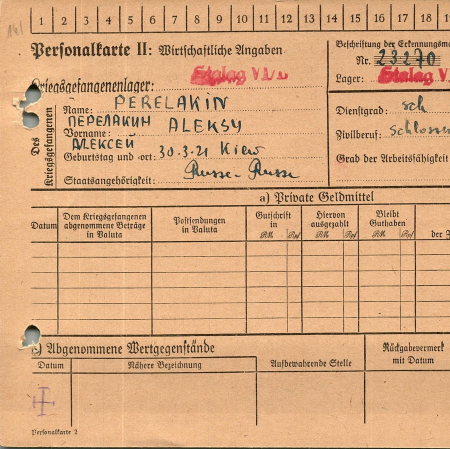 1 2 3 4 5 6 7 8 9 10 11 12 13 14 15 16 17 18 19
Personalkarte II: Wirtschaftliche Angaben
Beschriftung der Erkennungsma
Nr. 23270
Kriegsgefangenenlager: Stalag VI/
Lager: Stalag V
Des Kriegsgefangenen
Name: PERELAKIN
ПЕРЕЛАКИН
Vorname: ALEKSY
АЛЕКСЕЙ
Geburtstag und -ort: 30.3.21 Kiew
Staatsangehörigkeit: Russe - Russe
Dienstgrad: sch
Zivilberuf: Schlosse
Grad der Arbeitsfähigkeit
a) Private Geldmittel
Datum
Dem Kriegsgefangenen abgenommene Beträge in Valuta
Postsendungen in Valuta
Gutschrift in
RM Rpf
Hiervon ausgezahlt
RM Rpf
Bleibt Guthaben
RM Rpf
der Z
c) Abgenommene Wertgegenstände
Datum
Nähere Bezeichnung
Aufbewahrende Stelle
Rückgabevermerk mit Datum
Personalkarte 2